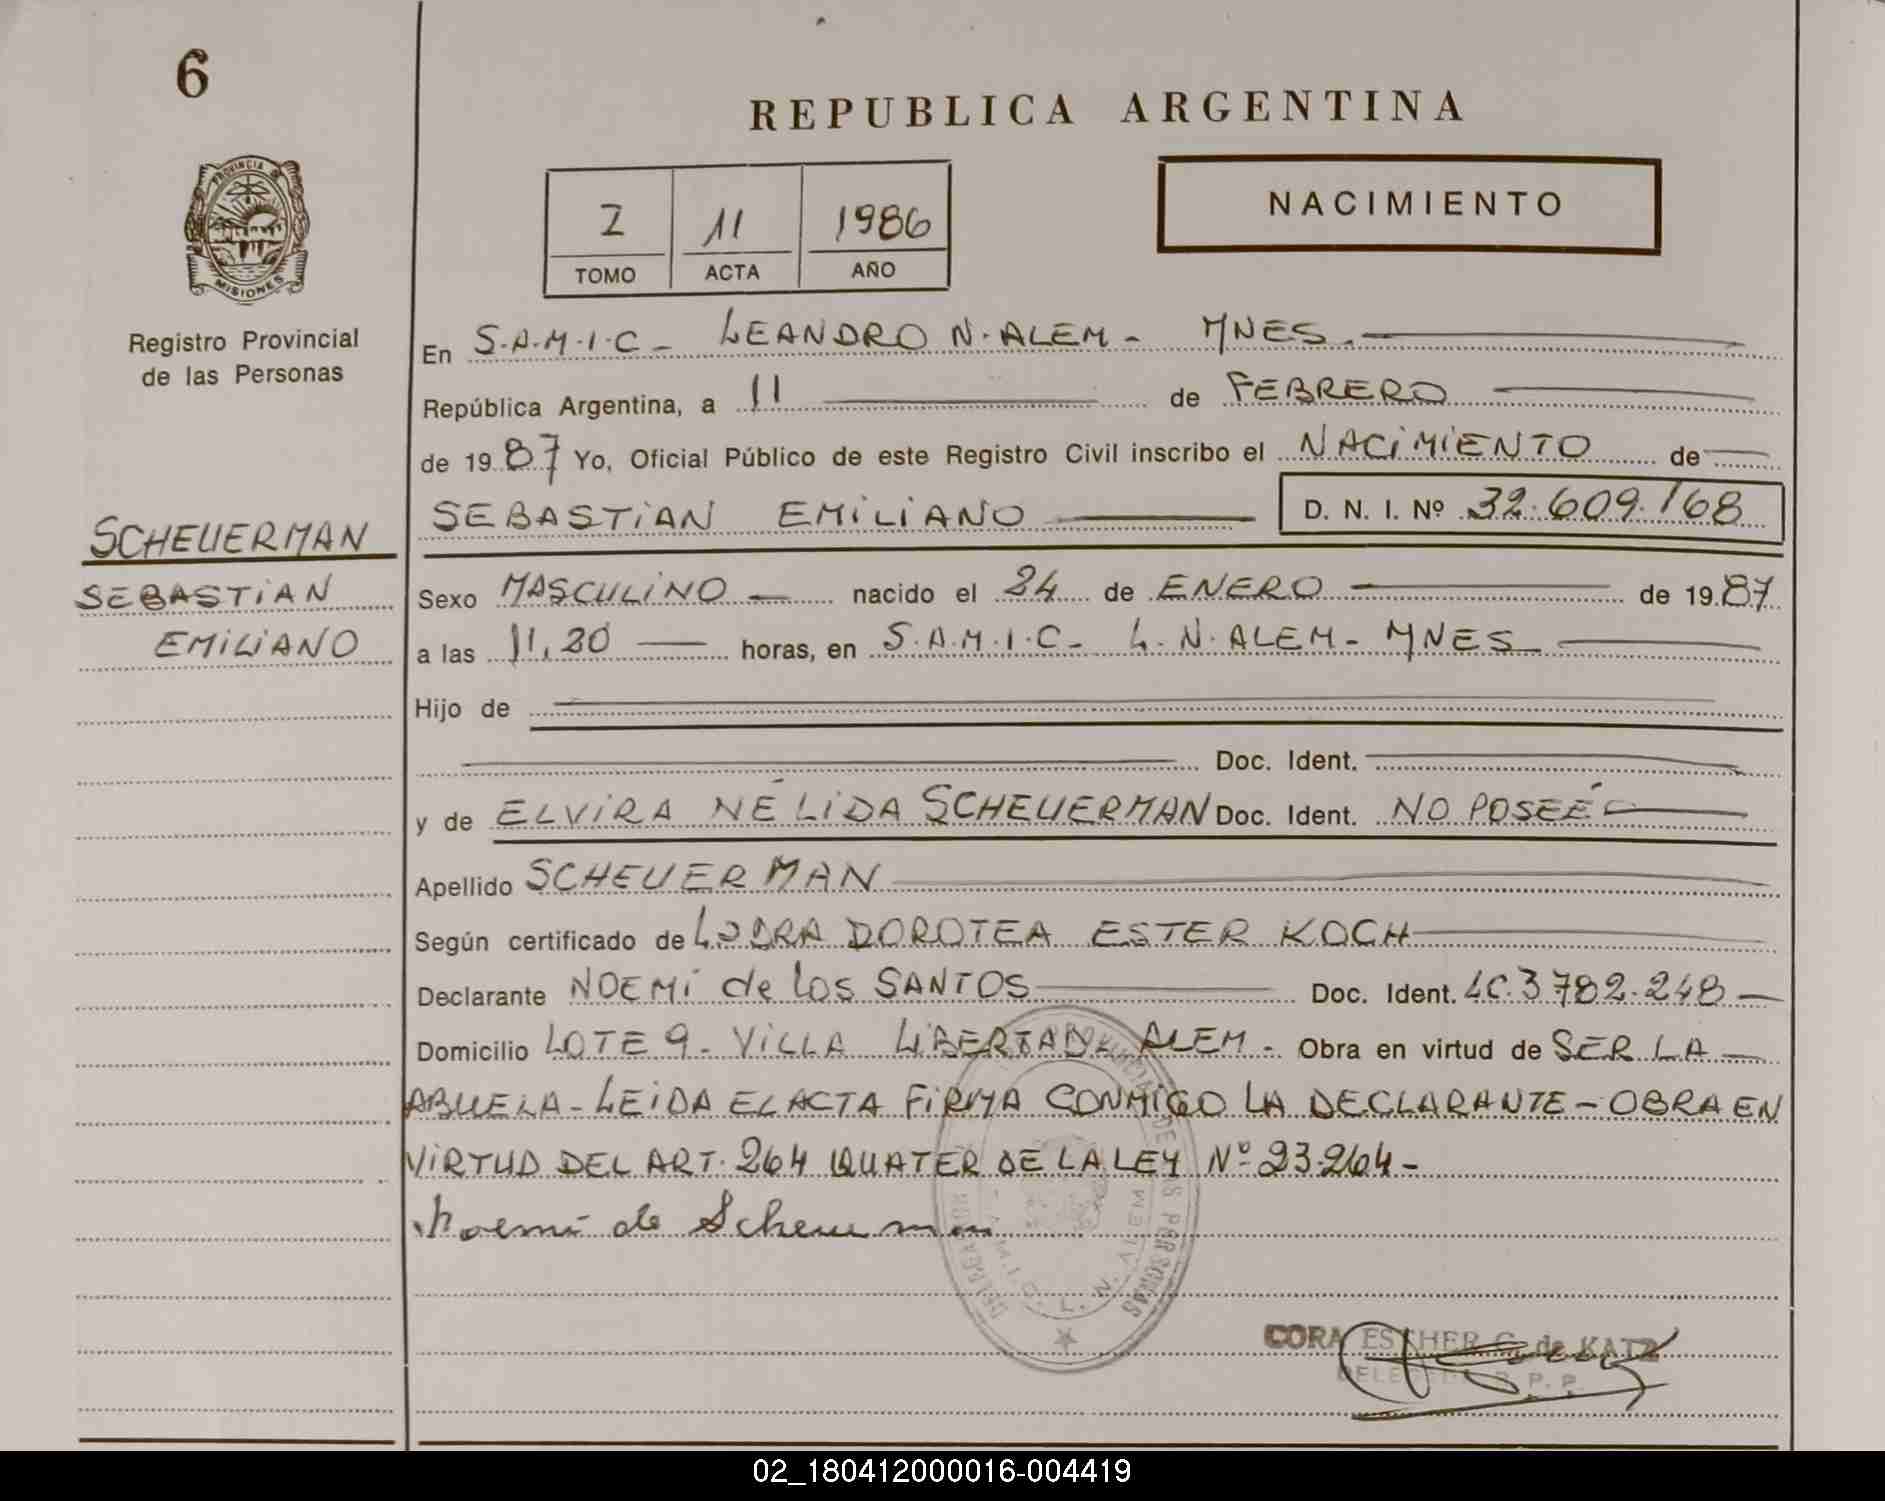 6
REPUBLICA ARGENTINA
PROVINCIA DE
MISIONES
Registro Provincial
de las Personas
2 11 1986
TOMO ACTA AÑO
NACIMIENTO
En S.A.M.I.C - LEANDRO N. ALEM - MNES.
República Argentina, a 11 de FEBRERO
de 1987 Yo, Oficial Público de este Registro Civil inscribo el NACIMIENTO de
SEBASTIAN EMILIANO D. N. I. Nº 32.609.168
SCHEUERMAN
SEBASTIAN
EMILIANO
Sexo MASCULINO nacido el 24 de ENERO de 1987
a las 11,20 horas, en S.A.M.I.C - L.N. ALEM - MNES
Hijo de
Doc. Ident.
y de ELVIRA NÉLIDA SCHEUERMAN Doc. Ident. NO POSEÉ
Apellido SCHEUERMAN
Según certificado de DOROTEA ESTER KOCH
Declarante NOEMÍ de los SANTOS Doc. Ident. LC.3782.248
Domicilio LOTE 9 - VILLA LIBERTAD - ALEM - Obra en virtud de SER LA
ABUELA - LEIDA EL ACTA FIRMA CONMIGO LA DECLARANTE - OBRA EN
VIRTUD DEL ART. 264 QUATER DE LA LEY Nº 23.264 -
Noemí de Scheuerman
CORA ESTHER G. de KATZ
02_180412000016-004419